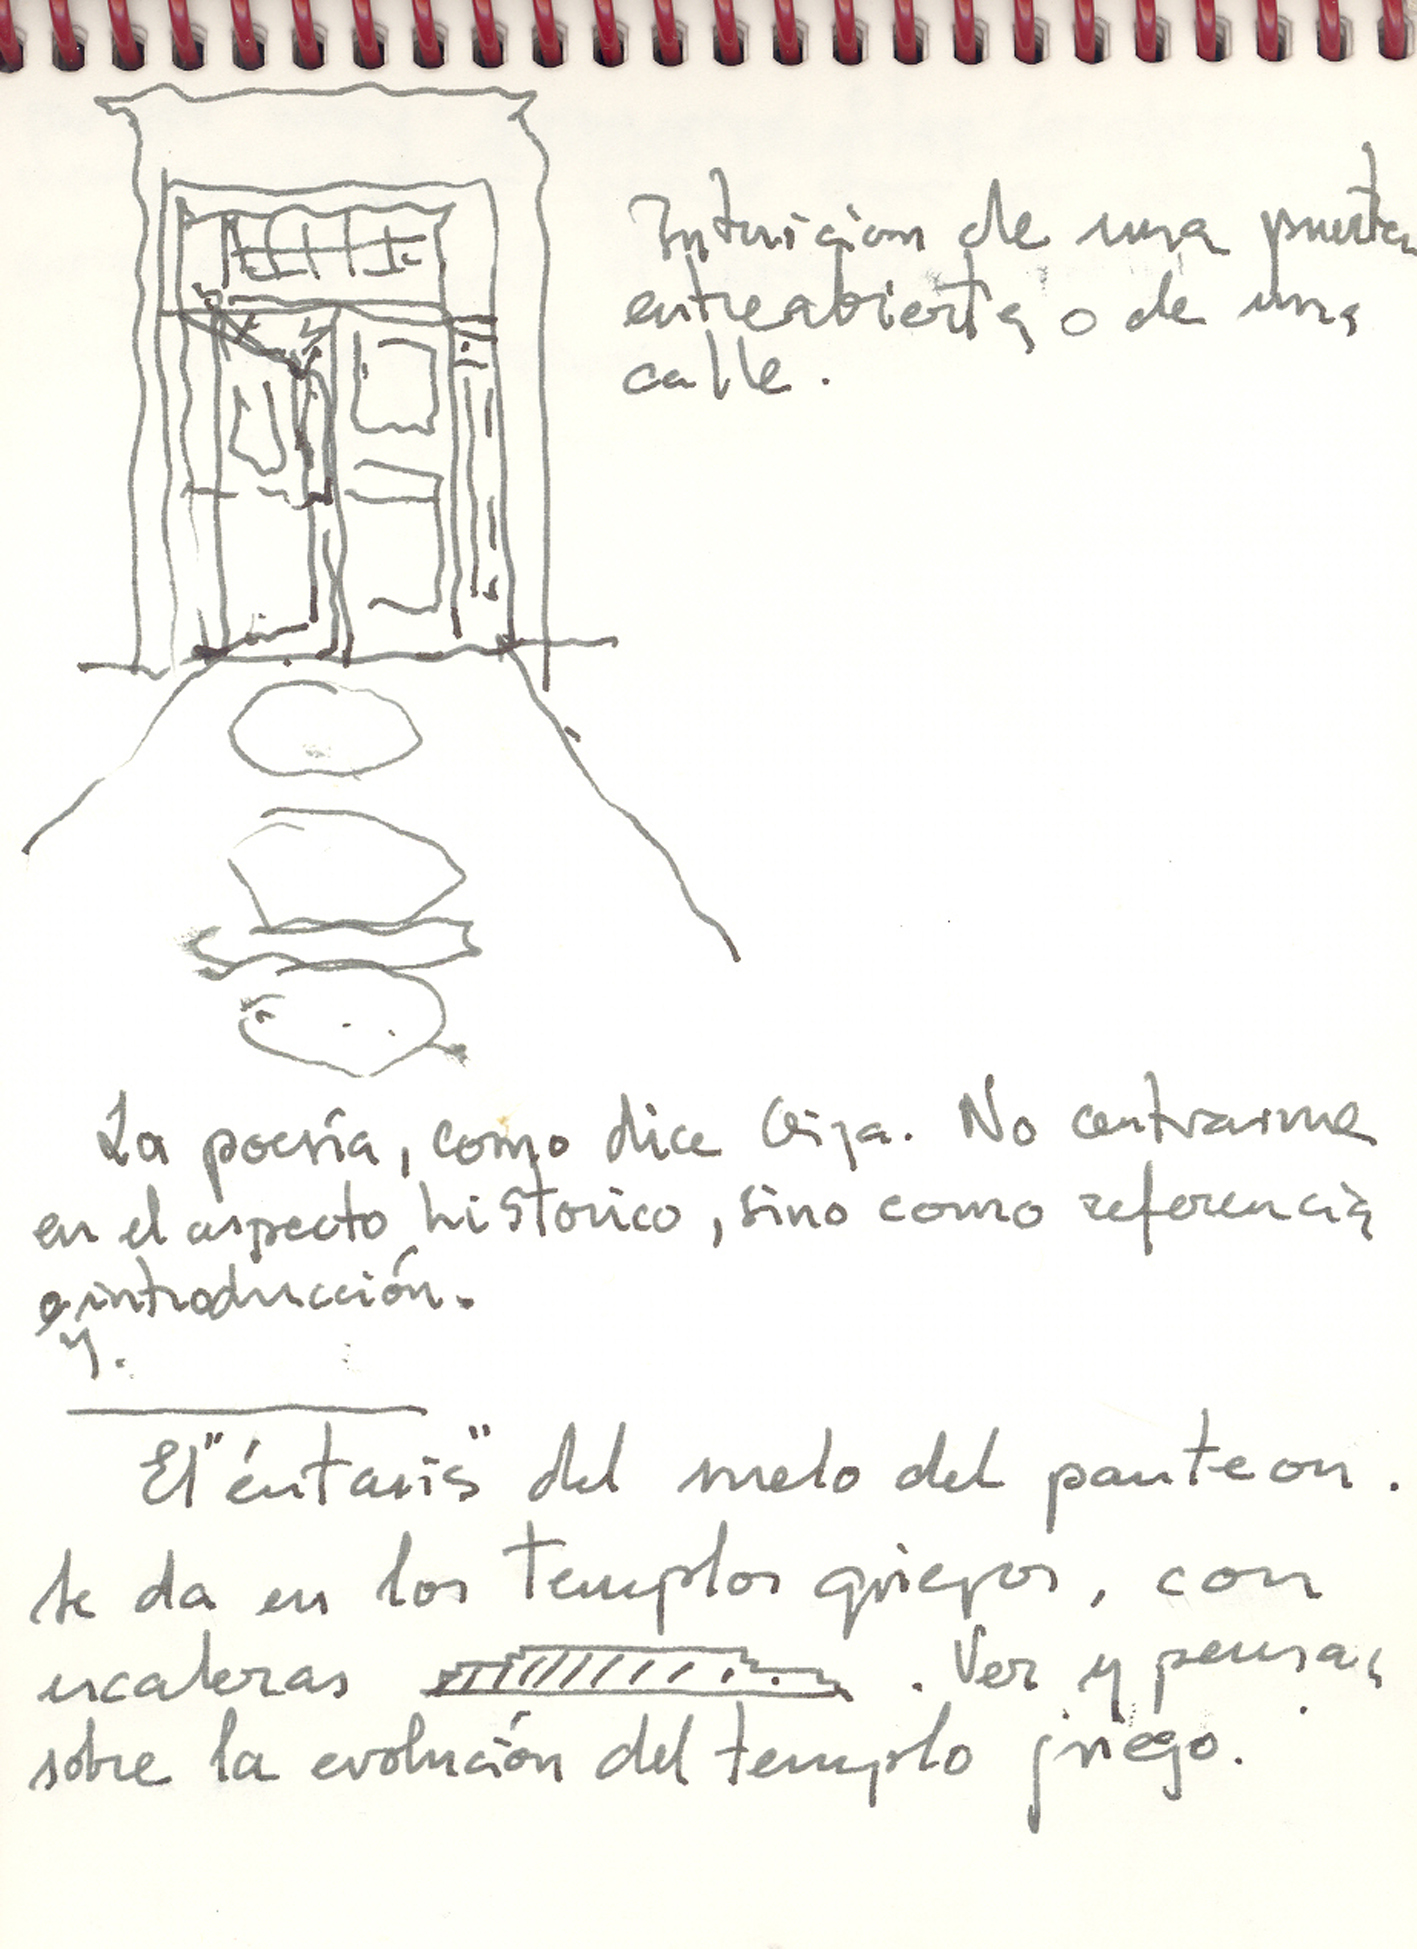 Intuicion de una puerta
entreabierta o de una
calle.
La poesía, como dice . No centrarme
en el aspecto historico, sino como referencia
e introducción.
y.
El "éntasis" del suelo del panteon.
Se da en los templos griegos, con
escaleras . Ver y pensar
sobre la evolución del templo griego.